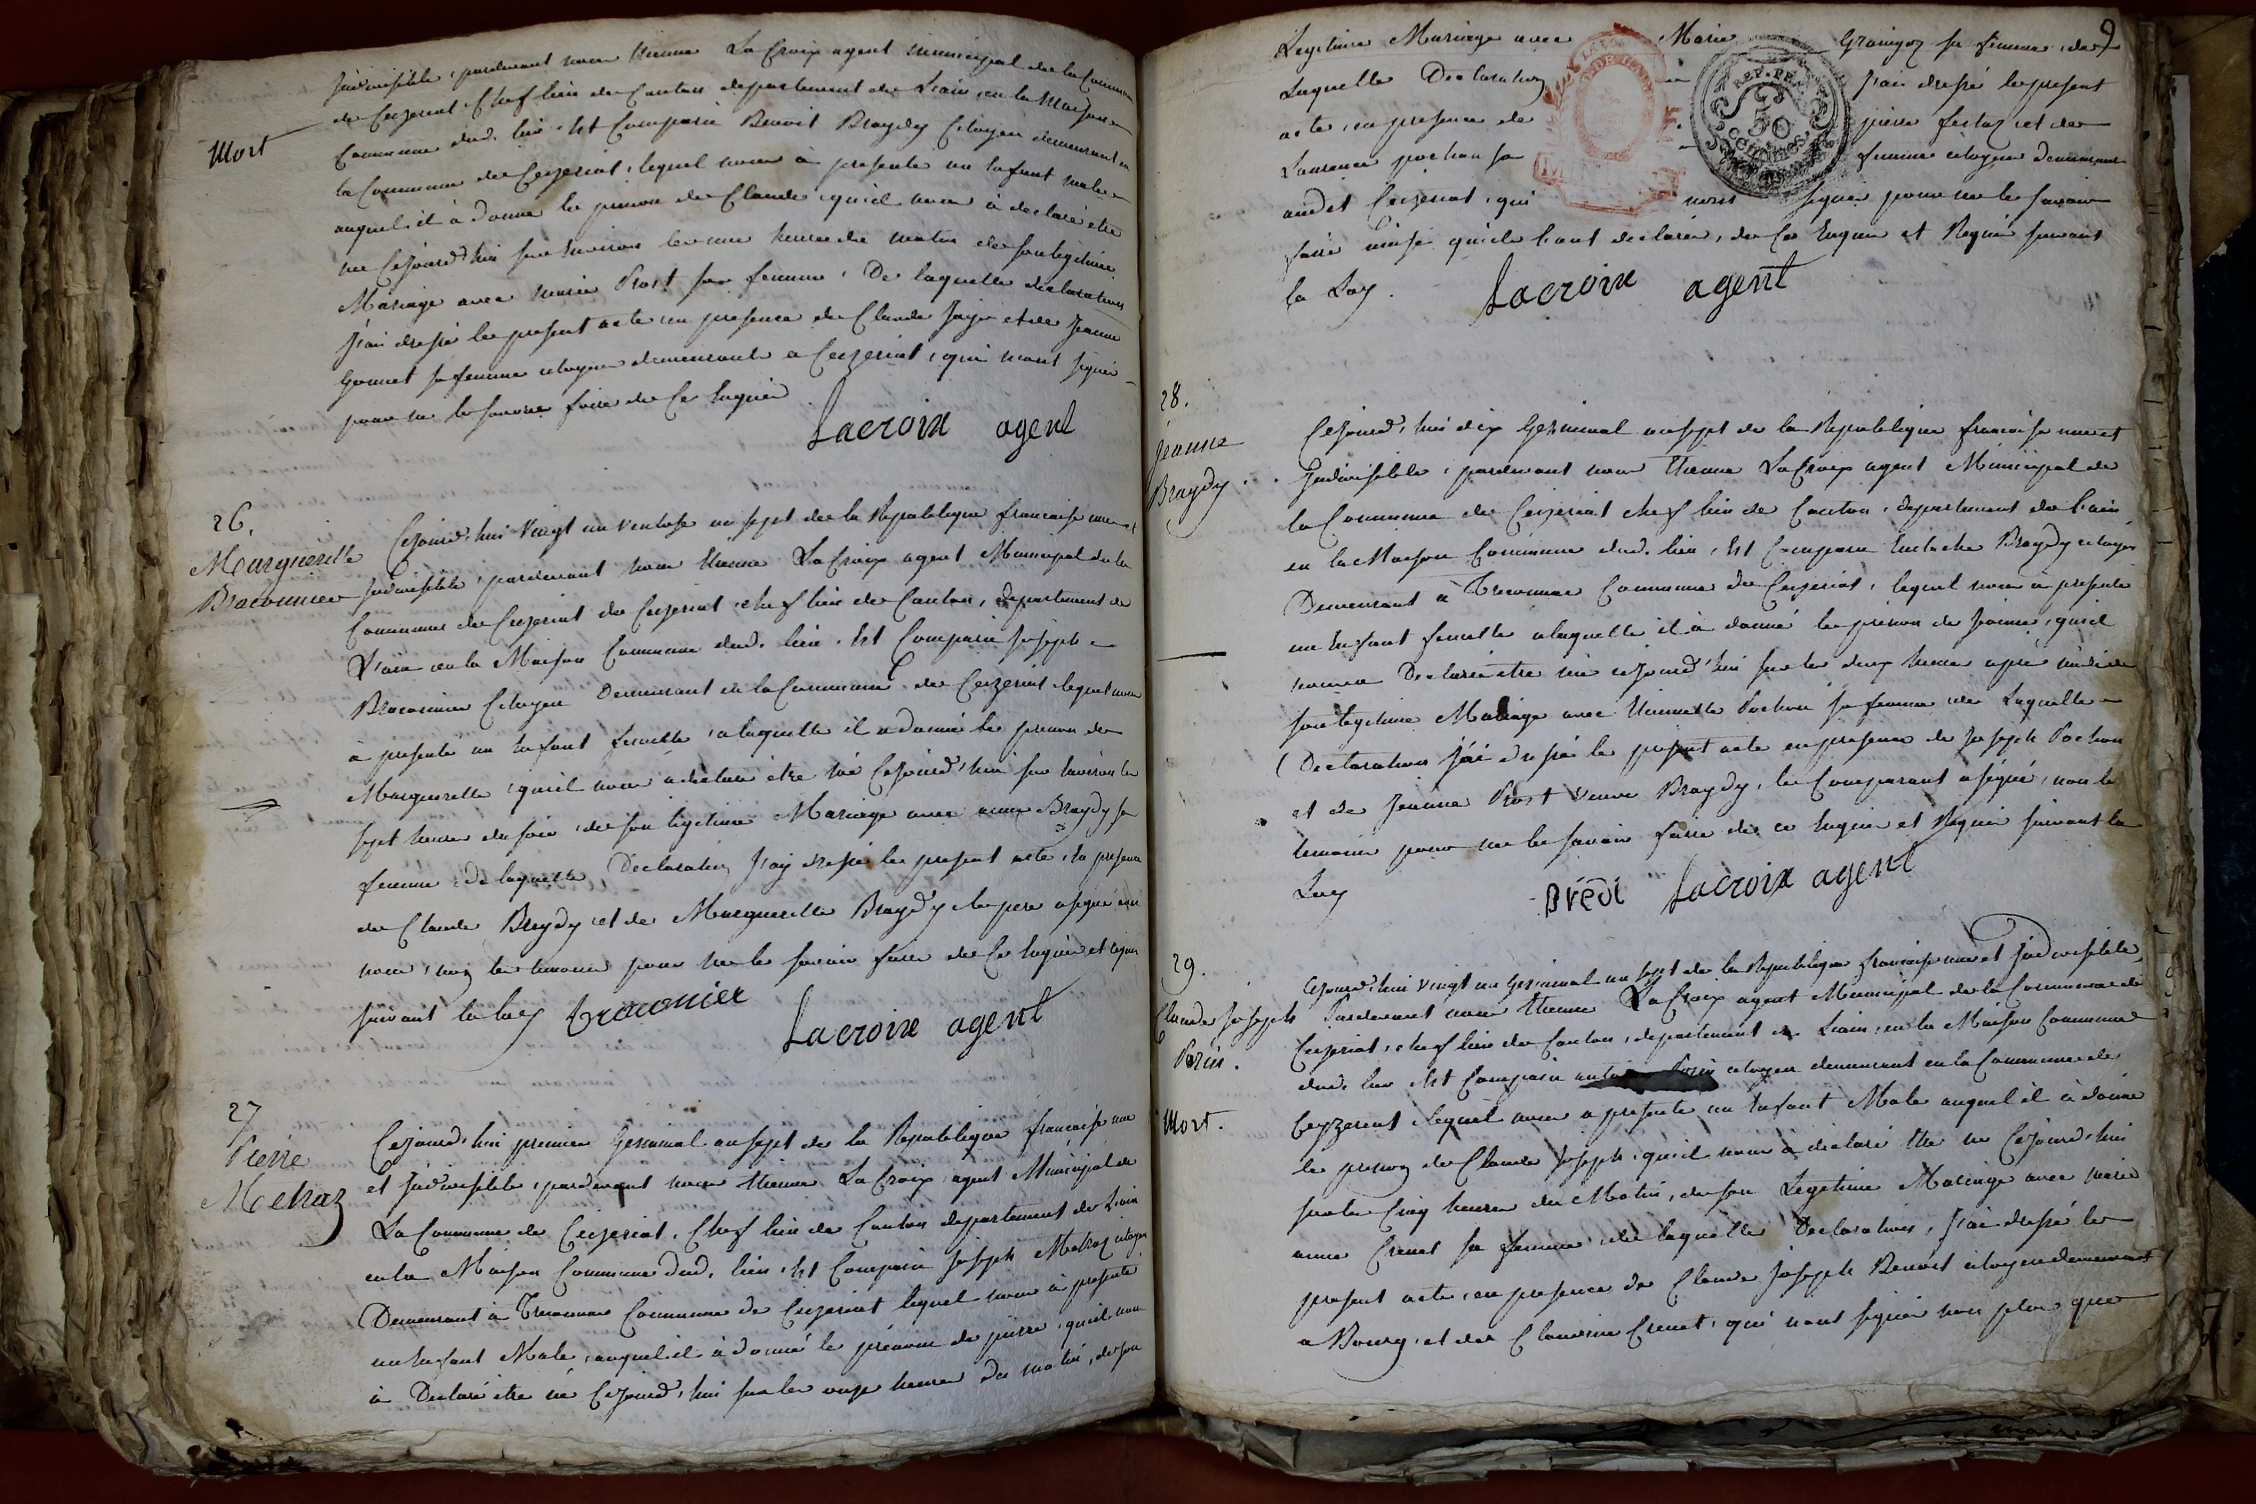 Indivisible, pardevant nous Etienne La Croix agent municipal de la Commune
de Ceyzeriat Chef lieu de Canton departement de L'ain, en la Maison
Mort
Commune dud. lieu, Est Comparu Benoit Braydy Citoyen demeurant en
la Commune de Ceyzeriat, lequel nous à presenté un Enfant male
auquel il à donné le prenom de Claude, qu'il nous à declaré etre
né Cejourd'hui sur Environ les une heure du matin de son legitime
Mariage avec marie Prost sa femme, De laquelle declaration
J'ai dressé le present acte en presence de Claude et de Jeanne
Gonnet sa femme citoyen demeurants a Ceyzeriat, qui n'ont signé
pour ne le savoir faire de Ce Enquis
Lacroix agent
26.
Margueritte
Braconnier
Cejourd'hui Vingt un Ventose an sept de la Republique francaise une et
Indivisible, pardevant nous Etienne La Croix agent Municipal de la
Commune de Ceyzeriat de Ceyzeriat, chef lieu de Canton, departement de
L'ain en la Maison Commune dud. lieu, Est Comparu Joseph
Braconnier Citoyen Demeurant en la Commune de Ceyzeriat lequel nous
à presenté un Enfant femelle, a laquelle il a donné le prenom de
Marguerette, qu'il nous a declaré etre né Cejourd'hui sur Environ les
sept heure du soir, de son legitime Mariage avec anne Braydy sa
femme, de laquelle Declaration J'ay dressé le present acte, En presence
de Claude Braydy et de Marguerette Braydy, le pere a signé avec
nous, non les temoins pour ne le savoir faire de Ce Enquis et requis
suivant la loy braconier
Lacroix agent
27
Pierre
Metraz
Cejourd'hui premier Germinal an sept de la Republique francaise une
et Indivisible, pardevant nous Etienne La Croix, agent Municipal de
La Commune de Ceyzeriat, Chef lieu de Canton departement de L'ain
en la Maison Commune Dud. lieu, Est Comparu Joseph Metraz citoyen
Demeurant à Treconnas Commune de Ceyzeriat lequel nous à presenté
un Enfant Male, auquel il à donné le prénom de pierre, qu'il nous
à Declaré etre né Cejourd'hui sur les onze heures du matin, de son
9
Legitime Mariage avec Marie Grangez sa femme, de
Laquelle Declaration J'ai dressé le present
acte, en presence de pierre et de
Laurence pochon sa femme citoyen demeurant
aud et Ceyzeriat, qui n'ont signé pour ne le savoir
faire ainsi qu'ils l'ont declarés, de Ce Enquis et Requis suivant
la Loy.
Lacroix agent
REP. FRA.
50
CENTIMES
28.
Jeanne
Braydy
Cejourd'hui dix Germinal an sept de la Republique francaise une et
Indivisible, pardevant nous Etienne La Croix agent Municipal de
la Commune de Ceyzeriat chef lieu de Canton, departement de l'ain
en la Maison Commune dud. lieu, Est Comparu Eustache Braydy citoyen
Demeurant à Treconnas Commune de Ceyzeriat, lequel nous a presenté
un Enfant femelle alaquelle il à donné le prenom de Jeanne, qu'il
nous a Declaré etre né cejourd'hui sur les deux heure après midi de
son legitime Mariage avec Pochon sa femme de Laquelle
Declaration j'ai dressé le present acte en presence de Joseph Pochon
et de Jeanne Prost veuve Braydy, le Comparant a signé, non les
temoins pour ne le savoir faire de ce Enquis et Requis suivant la
Loy
Brédi Lacroix agent
29.
Claude Joseph
Perin.
Mort.
Cejourd'hui vingt un Germinal an sept de la Republique francaise une et Indivisible
Pardevant nous Etienne La Croix agent Municipal de la Commune de
Ceyzeriat, chef lieu de Canton, departement de L'ain, en la Maison Commune
dud. lieu Est Comparu citoyen demeurant en la Commune de
Ceyzeriat lequel nous a presenté un Enfant Male auquel il à donné
le prenom de Claude Joseph, qu'il nous à declaré Etre né Cejourd'hui
sur les Cinq heures du Matin, de son Legitime Mariage avec marie
anne Crenet sa femme, de laquelle Declaration, J'ai dressé le
present acte, en presence de Claude Joseph Benoit citoyen demeurant
a Bourg, et de Claudine Crenet, qui n'ont signé non plus que